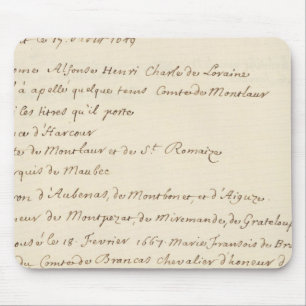 le 17. 1649
omes Alfonse Henri Charle de Loraine
'a apellé quelque tems Comte de Montlaur
i les titres qu'il porte
ce d'Harcour
te de Montlaur et de St. Romaize
rquis de Maubec
on d'Aubenas, de Montbonet, et d'Aiguze
neur de Montpezat, de Miremande, de Grateloup
ousé le 18. Fevrier 1667. Marie Fransois de Br
du Comte de Brancas Chevalier d'honeur d